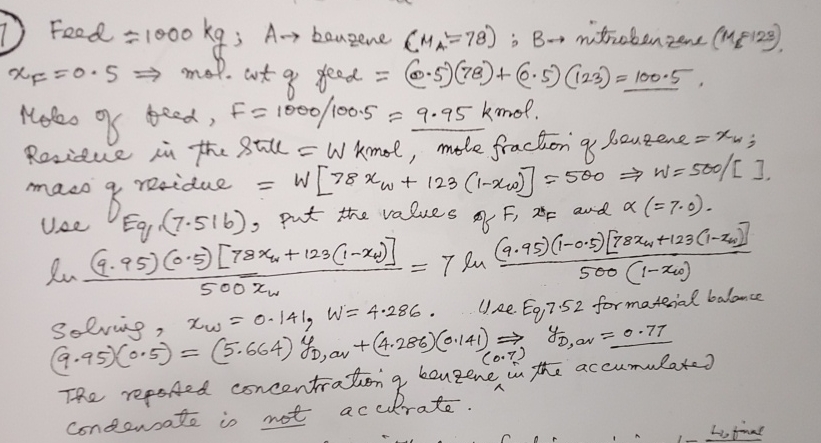 7) Feed = 1000 kg ; A → benzene (M_A = 78) ; B → nitrobenzene (M_B = 123).
x_F = 0.5 ⇒ mol. wt of feed = (0.5)(78) + (0.5)(123) = 100.5 ,
Moles of feed, F = 1000/100.5 = 9.95 kmol.
Residue in the still = W kmol, mole fraction of benzene = x_w ;
mass of residue = W[78 x_w + 123 (1-x_w)] = 500 ⇒ W = 500/[ ].
Use Eq. (7.51b), put the values of F, x_F and α (= 7.0).
ln (9.95)(0.5)[78x_w + 123(1-x_w)] / 500 x_w = 7 ln (9.95)(1-0.5)[78x_w + 123(1-x_w)] / 500 (1-x_w)
Solving, x_w = 0.141, W = 4.286. Use Eq. 7.52 for material balance
(9.95)(0.5) = (5.664) y_D,av + (4.286)(0.141) ⇒ y_D,av = 0.77
The reported concentration of benzene ^ (0.7) in the accumulated
condensate is not accurate.